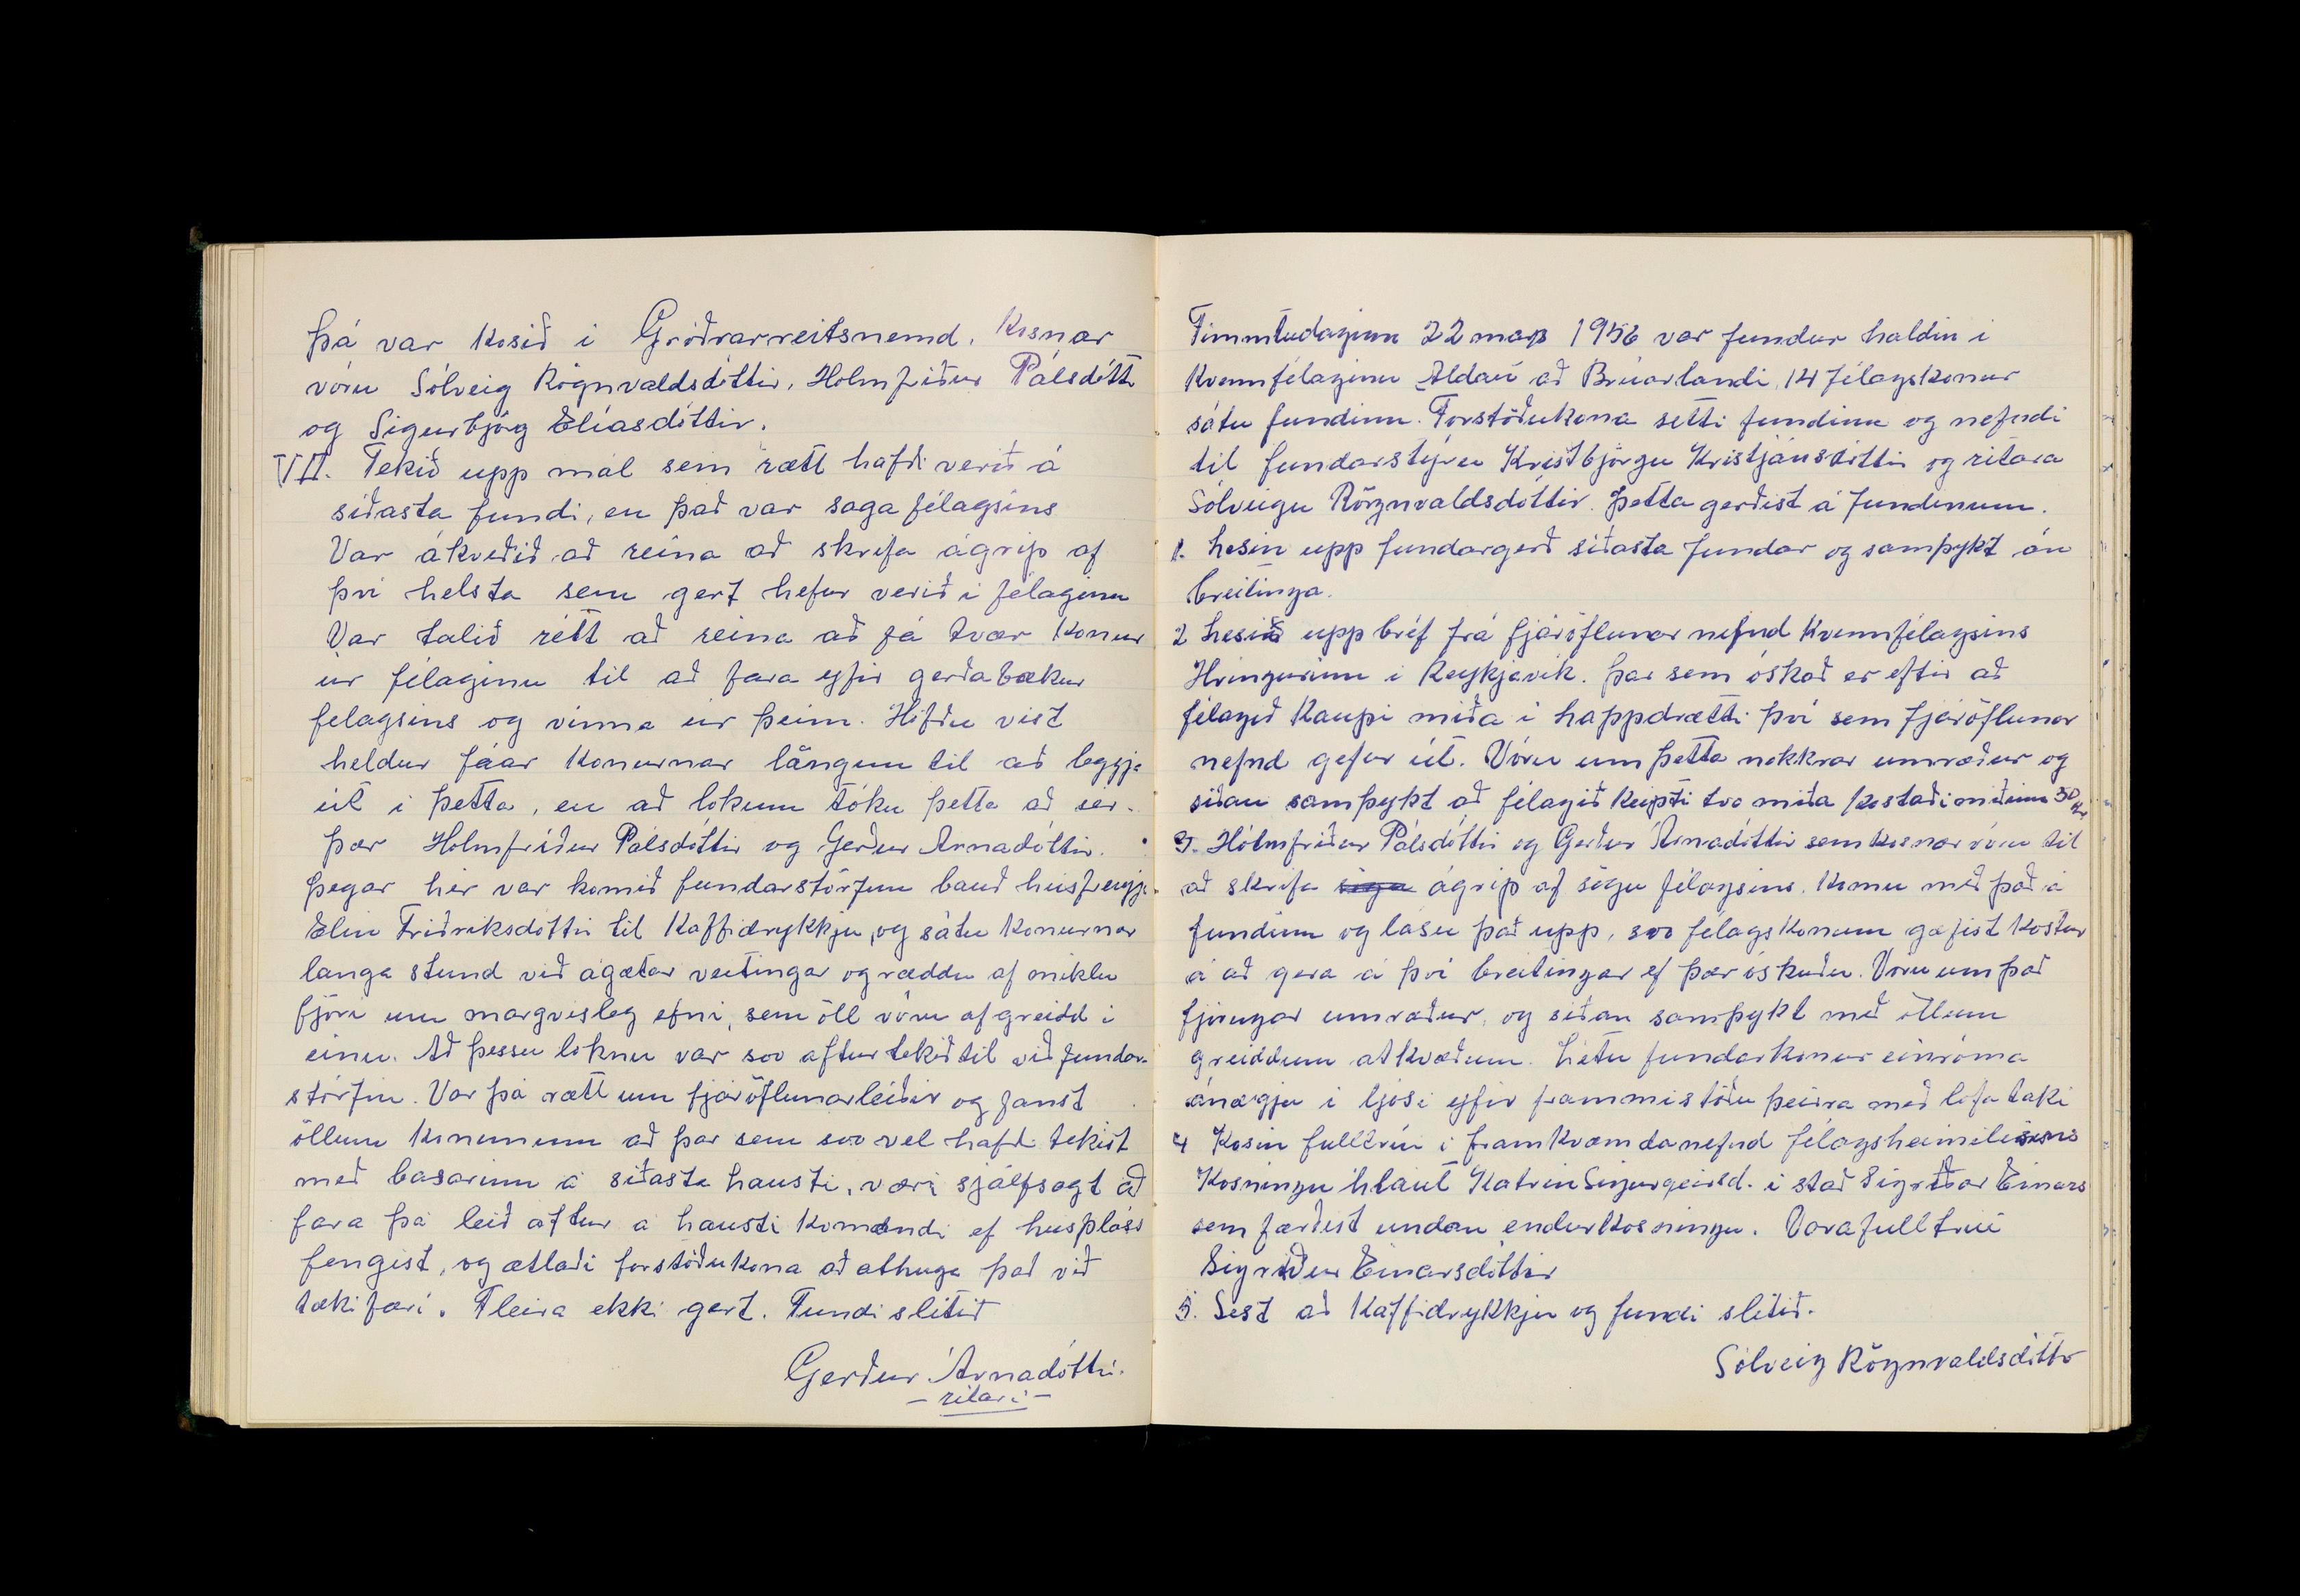 Þá var kosið i Gróðrarreitsnemd. Kosnar
vóru Sólveig Rögnvaldsdóttir, Holmfriður Pálsdótt
og Sigurbjörg Elíasdóttir.
VII. Tekið upp mál sem rætt hafði verið á
síðasta fundi, en það var saga félagsins
Var ákveðið að reina að skrifa ágrip af
því helsta sem gert hefur verið i félaginu
Var talið rétt að reina að fá tvær konur
úr félaginu til að fara yfir gerðabækur
félagsins og vinna úr þeim. Höfðu vist
heldur fáar konurnar löngun til að leggja
út i þetta, en að lokum tóku þetta að sér.
þær Holmfríður Pálsdóttir og Gerður Arnadóttir.
Þegar hér var komið fundarstörfum bauð húsfreyja.
Elin Friðriksdóttir til kaffidrykkju, og sátu konurnar
langa stund við ágætar veitingar og ræddu af miklu
fjöri um margvisleg efni, sem öll vóru afgreidd i
einu. Að þessu loknu var svo aftur tekið til við fundar-
störfin. Var þá rætt um fjáröflunarleiðir og fanst
öllum konunum að þar sem svo vel hafði tekist
með basarinn á siðasta hausti, væri sjálfsagt að
fara þá leið aftur á hausti komandi ef húspláss
fengist, og ætlaði forstöðukona að athuga það við
tækifæri. Fleira ekki gert. Fundi slitið
Gerður Árnadóttir.
- ritari -
Fimmtudaginn 22 mars 1956 var fundur haldin i
Kvennfélaginu Aldan að Brúarlandi, 14 félagskonur
sátu fundinn. Forstöðukona setti fundinn og nefndi
til fundarstýru Kristbjörgu Kristjánsdóttir og ritara
Sólveigu Rögnvaldsdóttir. Þetta gerðist á fundinum.
1. Lesin upp fundargerð síðasta fundar og samþykt án
breitinga.
2 Lesið upp bréf frá fjáröflunar nefnd Kvennfélagsins
Hringurinn i Reykjavík. Þar sem óskað er eftir að
félagið Kaupi miða i happdrætti því sem fjáröflunar
nefnd gefur út. Vóru um þetta nokkrar umræður og
síðan samþykt að félagið Keipti tvo miða Kostaði miðinn 50 kr
3. Hólmfriður Pálsdóttir og Gerður Árnadóttir sem kosnar vóru til
að skrifa söga ágrip af sögu félagsins. Komu með það á
fundinn og lásu það upp, svo félagskonum gæfist kostur
á að gera á því breitingar ef þær óskuðu. Vóru um það
fjörugar umræður, og siðan samþykt með öllum
greiddum atkvæðum. Létu fundarkonur einróma
ánægju i ljósi yfir frammistöðu þeirra með lófataki
4 Kosin fulltrúi i framkvæmdanefnd félagsheimilisins
Kosningu hlaut Katrin Sigurgeirsd. i stað Sigríðar Einars
sem færðist undan endurkosningu. Varafulltrúi
Sigríður Einarsdóttir
5. Sest að Kaffidrykkju og fundi slitið.
Sólveig Rögnvaldsdóttir